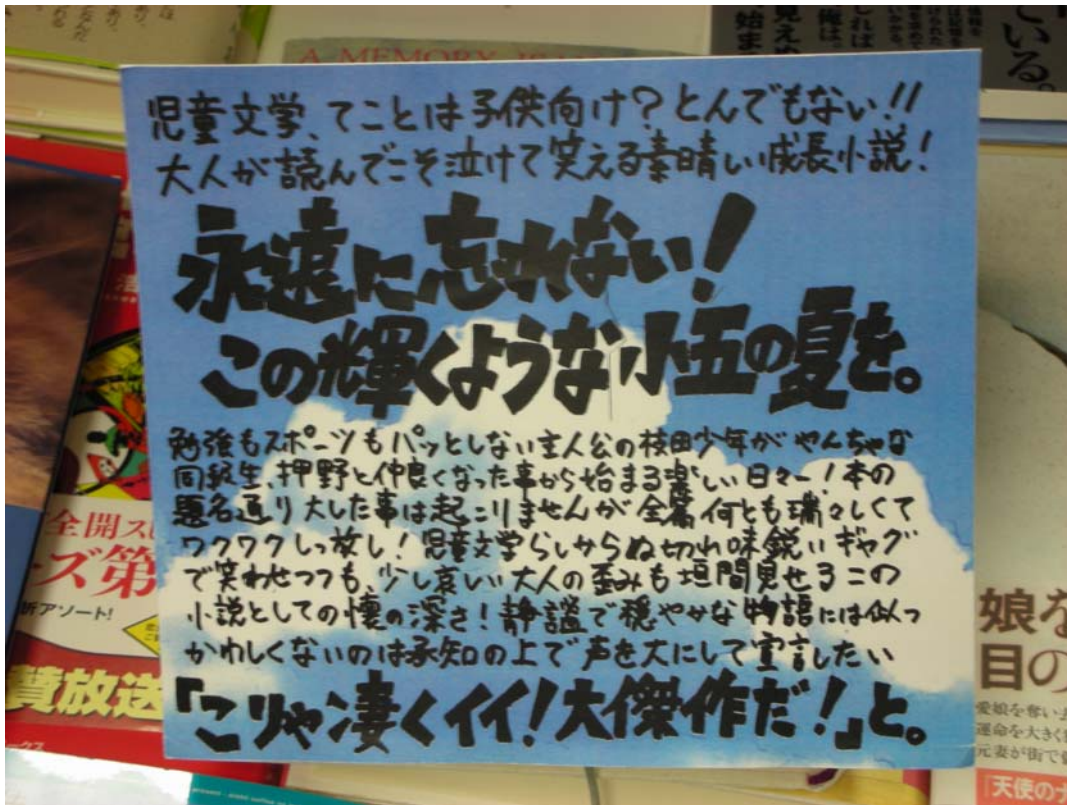 A MEMORY
児童文学、てことは子供向け?とんでもない!!
大人が読んでこそ泣けて笑える素晴しい成長小説!
永遠に忘れない!
この輝くような小五の夏を。
勉強もスポーツもパッとしない主人公の枝田少年がやんちゃな
同級生、押野と仲良くなった事から始まる楽しい日々ー!本の
題名通り大した事は起こりませんが全篇何とも瑞々しくて
ワクワクしっ放し!児童文学らしからぬ切れ味鋭いギャグ
で笑わせつつも、少し哀しい大人の歪みも垣間見せるこの
小説としての懐の深さ!静謐で穏やかな物語には似つ
かわしくないのは承知の上で声を大にして宣言したい
「こりゃ凄くイイ!大傑作だ!」と。
全開ス
ーズ第
新アソート!
賛放送
娘を
目の
愛娘を奪い
運命を大きく
元妻が街で
「天使のナ
いる。
見えぬ
俺は。
始ま